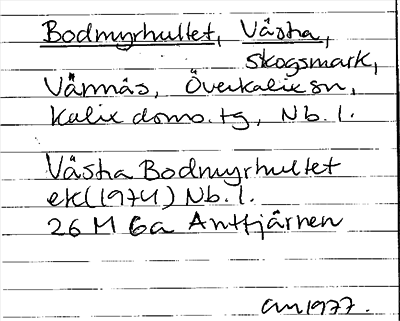 Bodmyrhultet, Västra,
skogsmark,
Vännäs, Överkalix sn,
Kalix doms. tg, Nb. l.
Västra Bodmyrhultet
ek (1974) Nb. l.
26 M 6a Anttjärnen
am 1977.